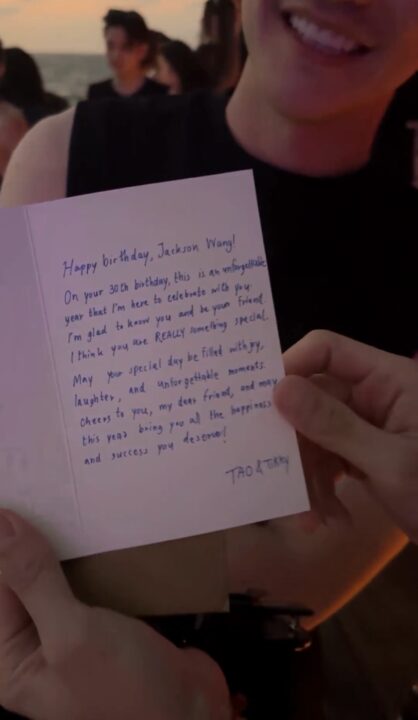 Happy birthday, Jackson Wang!
On your 30th birthday, this is an unforgettable
year that I'm here to celebrate with you.
I'm glad to know you and be your friend.
I think you are REALLY something special.
May your special day be filled with joy,
laughter, and unforgettable moments.
Cheers to you, my dear friend, and may
this year bring you all the happiness
and success you deserve!
TAO &